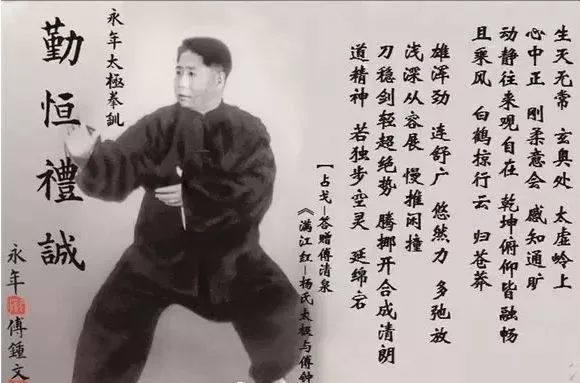 生天无常 玄奥处 太虚岭上
心中正 刚柔意会 感知通旷
动静往来观自在 乾坤俯仰皆融畅
且乘风 白鹤掠行云 归苍莽
雄浑劲 连舒广 悠然力 多弛放
浅深从容展 慢推闲撞
刀稳剑轻超绝势 腾挪开合成清朗
道精神 若独步空灵 延绵宕
【占戈—答赠傅清泉
《满江红—杨氏太极与傅钟
永年太極拳訓
勤恒禮誠
永年 傅鍾文